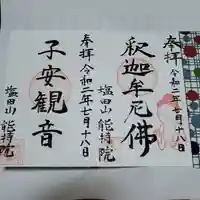 奉拝
令和二年七月十八日
釈迦牟尼佛
塩田山
能持院
奉拝
令和二年七月十八日
子安観音
塩田山
能持院